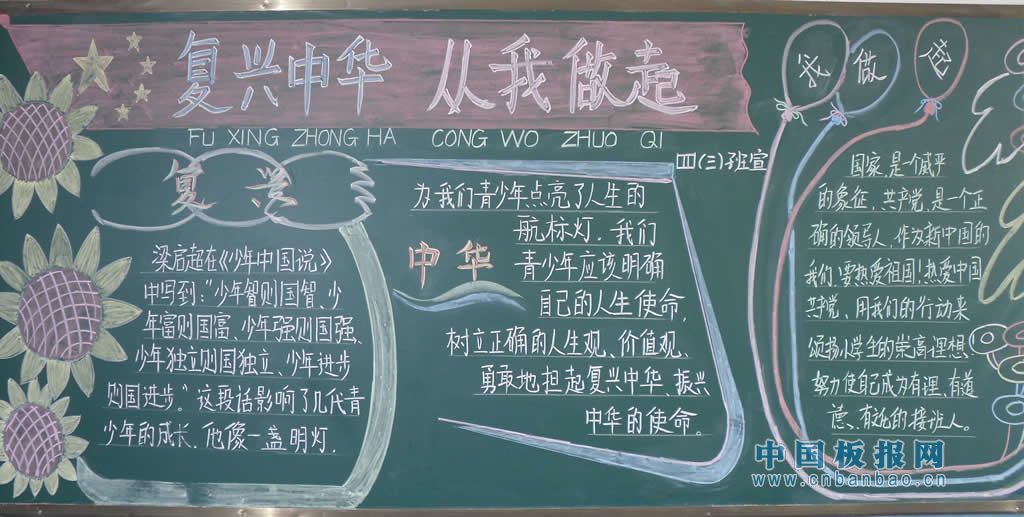 复兴中华 从我做起
FU XING ZHONG HA CONG WO ZHUO QI
四(三)班宣
复兴
梁启超在《少年中国说》
中写到:"少年智则国智、少
年富则国富、少年强则国强、
少年独立则国独立、少年进步
则国进步。"这段话影响了几代青
少年的成长.他像一盏明灯.
为我们青少年点亮了人生的
航标灯.我们
中华
青少年应该明确
自己的人生使命,
树立正确的人生观、价值观、
勇敢地担起复兴中华、振兴
中华的使命。
我做起
国家,是一个威严
的象征,共产党,是一个正
确的领导人,作为新中国的
我们,要热爱祖国!热爱中国
共产党、用我们的行动来
颂扬小学生的崇高理想,
努力使自己成为有理、有道
德、有纪的接班人。
中国板报网
www.cnbanbao.cn